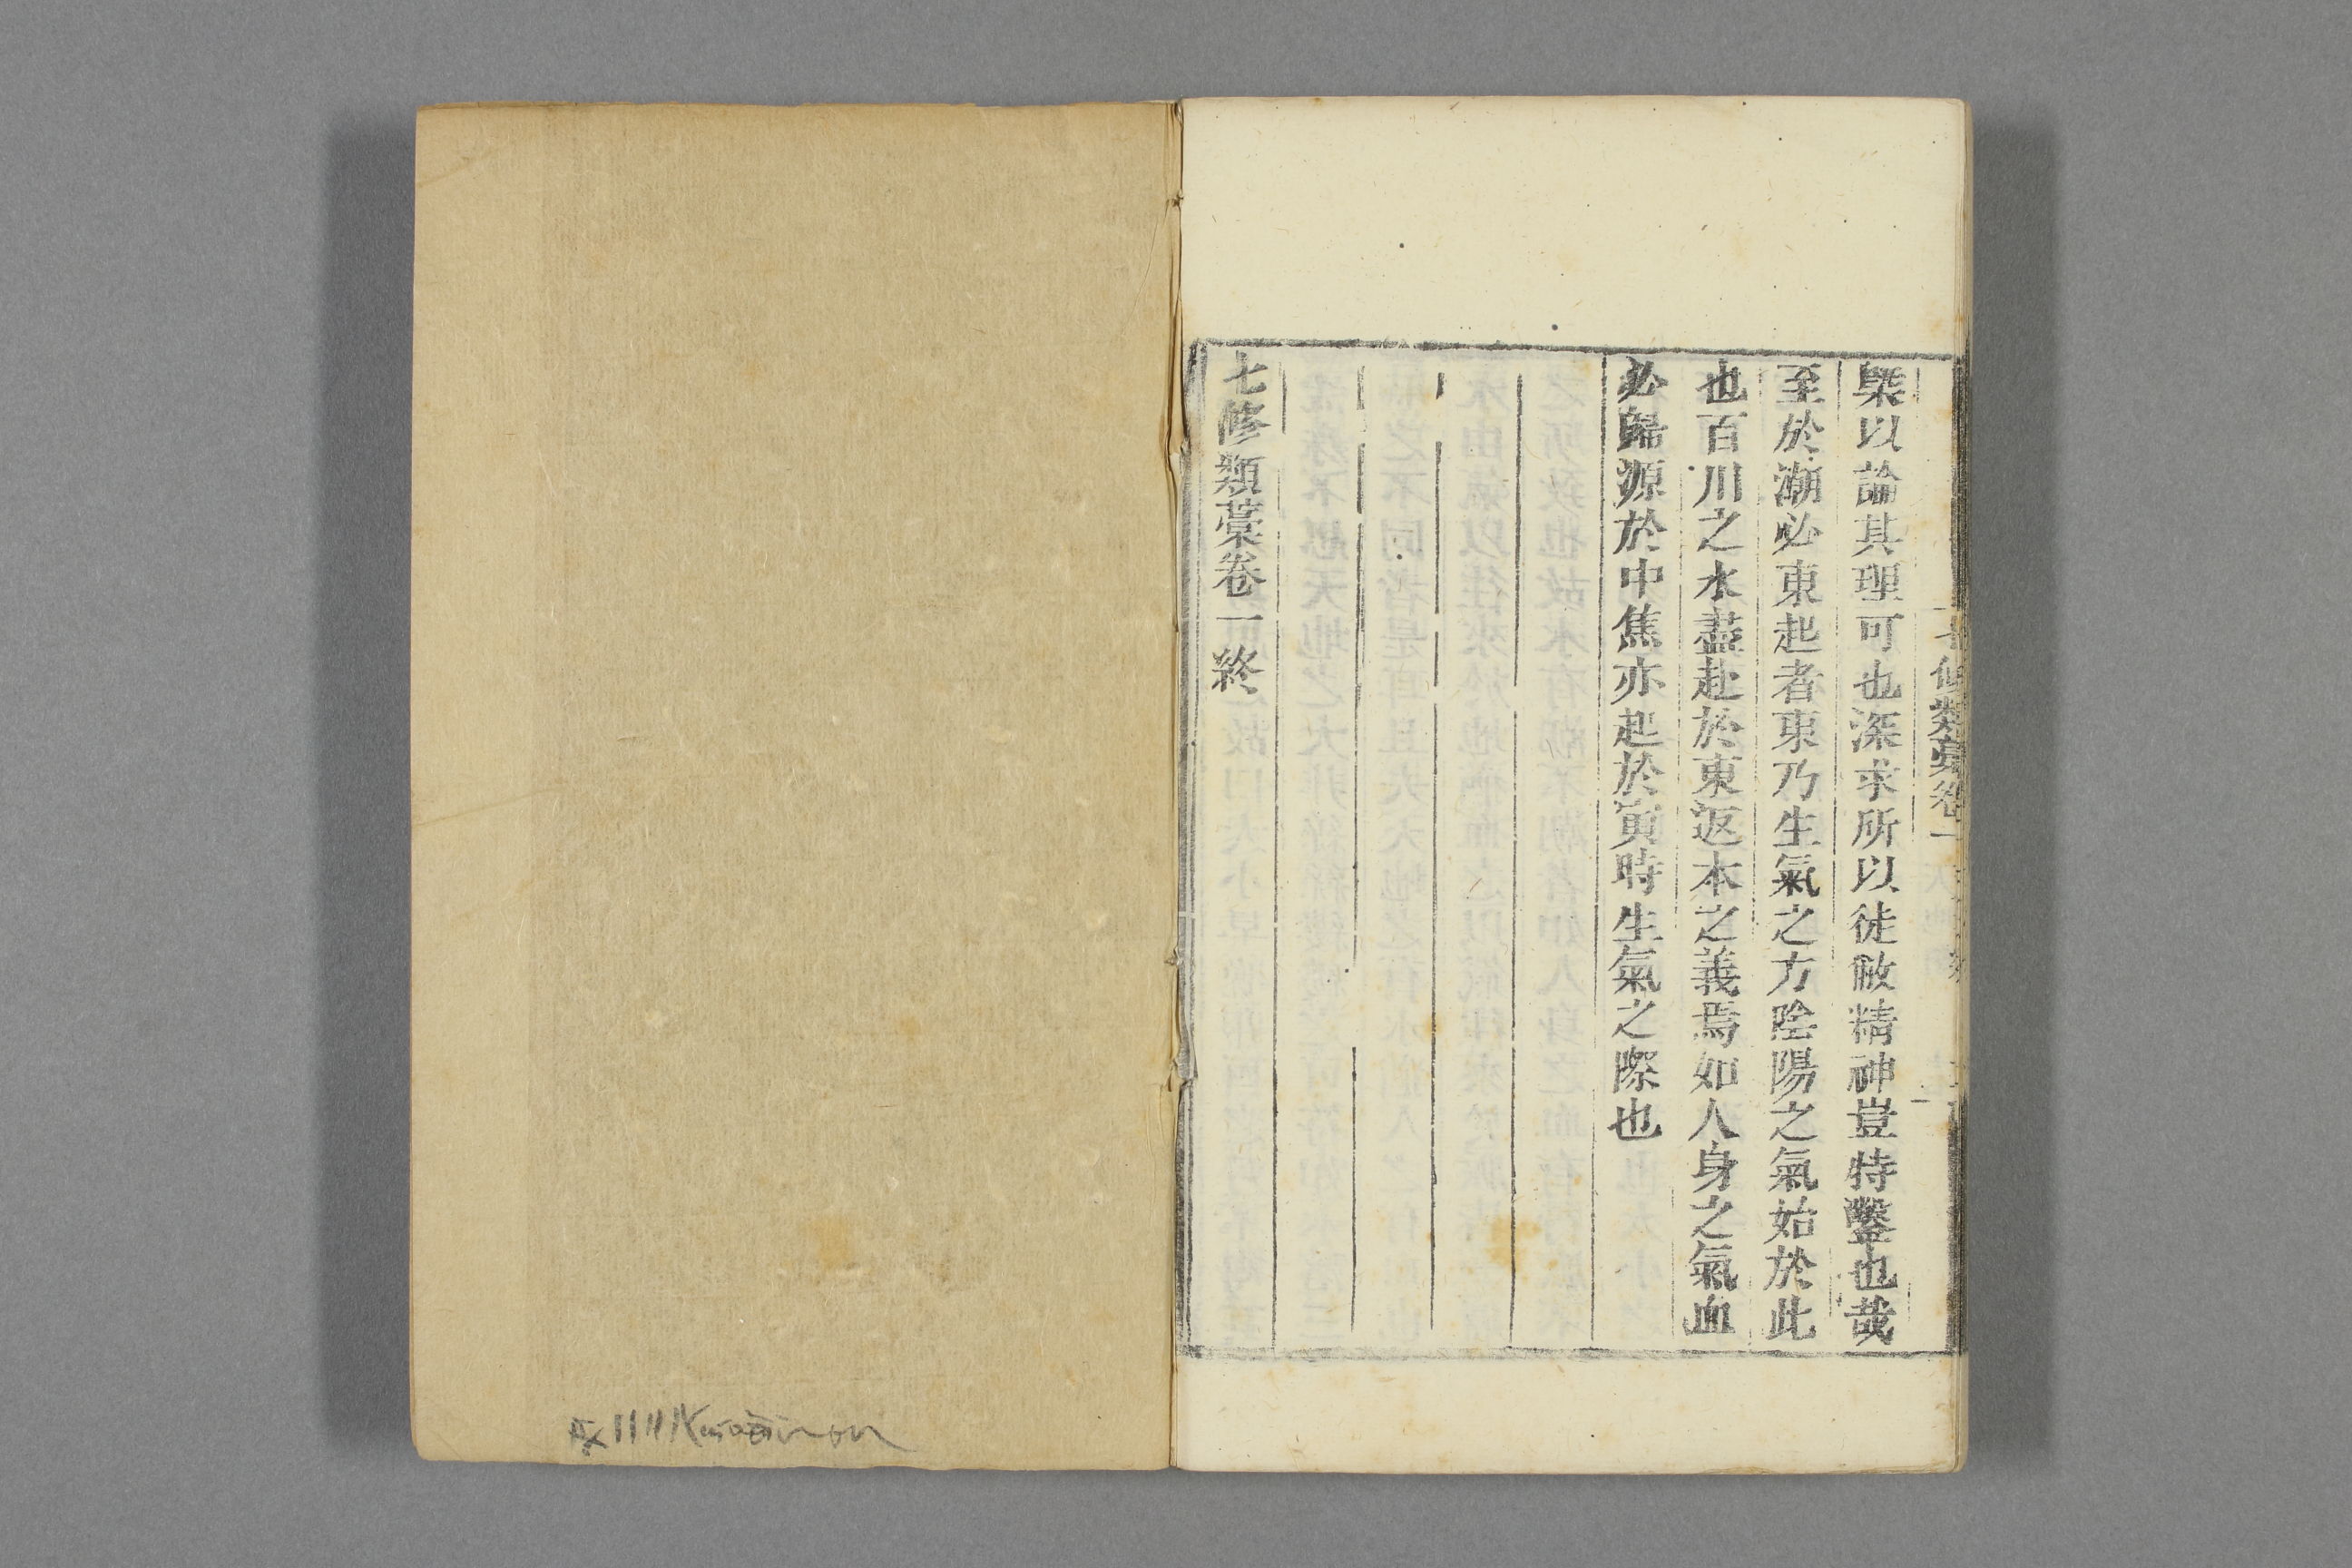 槩以論其理可也深求所以徒敝精神豈特鑿也哉
至於潮必東起者東乃生氣之方陰陽之氣始於此
也百川之水盡赴於東返本之義焉如人身之氣血
必歸源於中焦亦起於寅時生氣之際也
七修類藁卷一終
七修類藁卷一